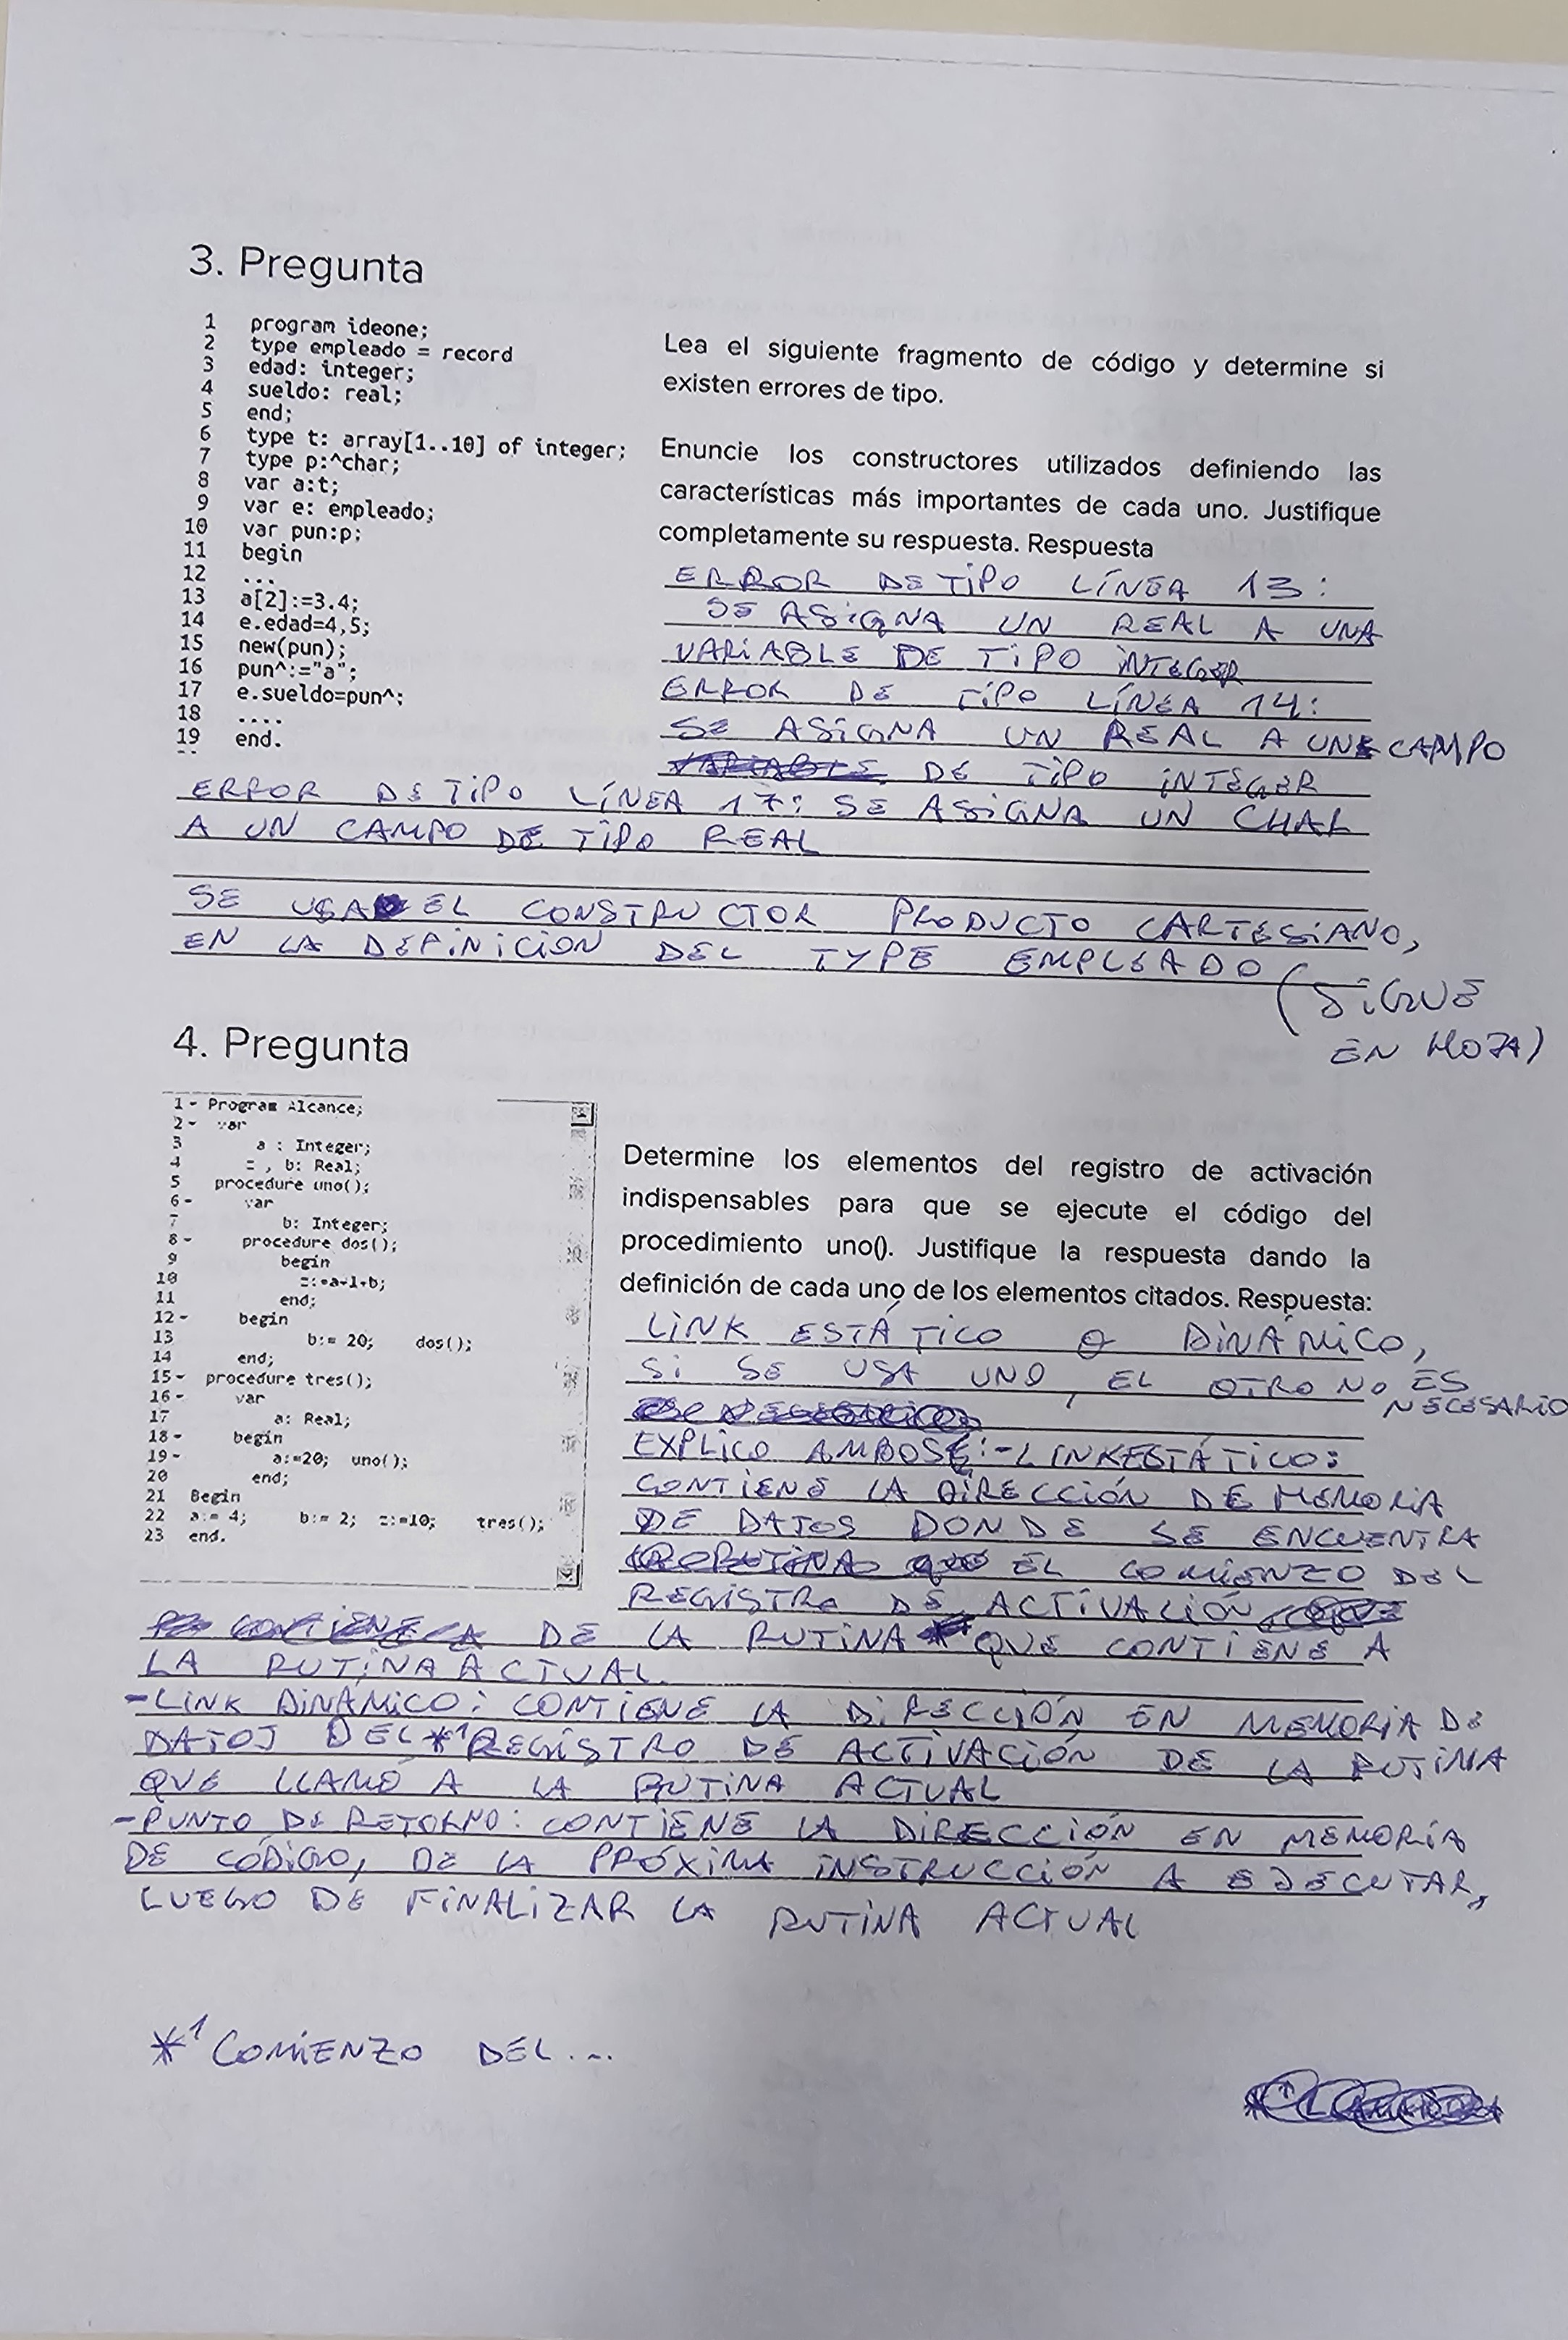 3. Pregunta
1 program ideone;
2 type empleado = record
3 edad: integer;
4 sueldo: real;
5 end;
6 type t: array[1..10] of integer;
7 type p:^char;
8 var a:t;
9 var e: empleado;
10 var pun:p;
11 begin
12 ...
13 a[2]:=3.4;
14 e.edad=4,5;
15 new(pun);
16 pun^:="a";
17 e.sueldo=pun^;
18 ....
19 end.
Lea el siguiente fragmento de código y determine si
existen errores de tipo.
Enuncie los constructores utilizados definiendo las
características más importantes de cada uno. Justifique
completamente su respuesta. Respuesta
ERROR DE TIPO LÍNEA 13:
SE ASIGNA UN REAL A UNA
VARIABLE DE TIPO INTEGER
ERROR DE TIPO LÍNEA 14:
SE ASIGNA UN REAL A UN CAMPO
DE TIPO INTEGER
ERROR DE TIPO LÍNEA 17: SE ASIGNA UN CHAR
A UN CAMPO DE TIPO REAL
SE USA EL CONSTRUCTOR PRODUCTO CARTESIANO,
EN LA DEFINICION DEL TYPE EMPLEADO (SIGUE
EN HOJA)
4. Pregunta
1 - Program Alcance;
2 - var
3 a : Integer;
4 z , b: Real;
5 procedure uno();
6 - var
7 b: Integer;
8 - procedure dos();
9 begin
10 z:=a+1+b;
11 end;
12 - begin
13 b:= 20; dos();
14 end;
15 - procedure tres();
16 - var
17 a: Real;
18 - begin
19 - a:=20; uno();
20 end;
21 Begin
22 a:= 4; b:= 2; z:=10; tres();
23 end.
Determine los elementos del registro de activación
indispensables para que se ejecute el código del
procedimiento uno(). Justifique la respuesta dando la
definición de cada uno de los elementos citados. Respuesta:
LINK ESTÁTICO O DINÁMICO,
SI SE USA UNO, EL OTRO NO ES
NECESARIO
EXPLICO AMBOS: - LINK ESTÁTICO:
CONTIENE LA DIRECCIÓN DE MEMORIA
DE DATOS DONDE SE ENCUENTRA
EL COMIENZO DEL
REGISTRO DE ACTIVACIÓN
DE LA RUTINA QUE CONTIENE A
LA RUTINA ACTUAL.
- LINK DINÁMICO: CONTIENE LA DIRECCIÓN EN MEMORIA DE
DATOS DEL *1 REGISTRO DE ACTIVACIÓN DE LA RUTINA
QUE LLAMÓ A LA RUTINA ACTUAL
- PUNTO DE RETORNO: CONTIENE LA DIRECCIÓN EN MEMORÍA
DE CÓDIGO, DE LA PRÓXIMA INSTRUCCIÓN A EJECUTAR,
LUEGO DE FINALIZAR LA RUTINA ACTUAL
*1 COMIENZO DEL...